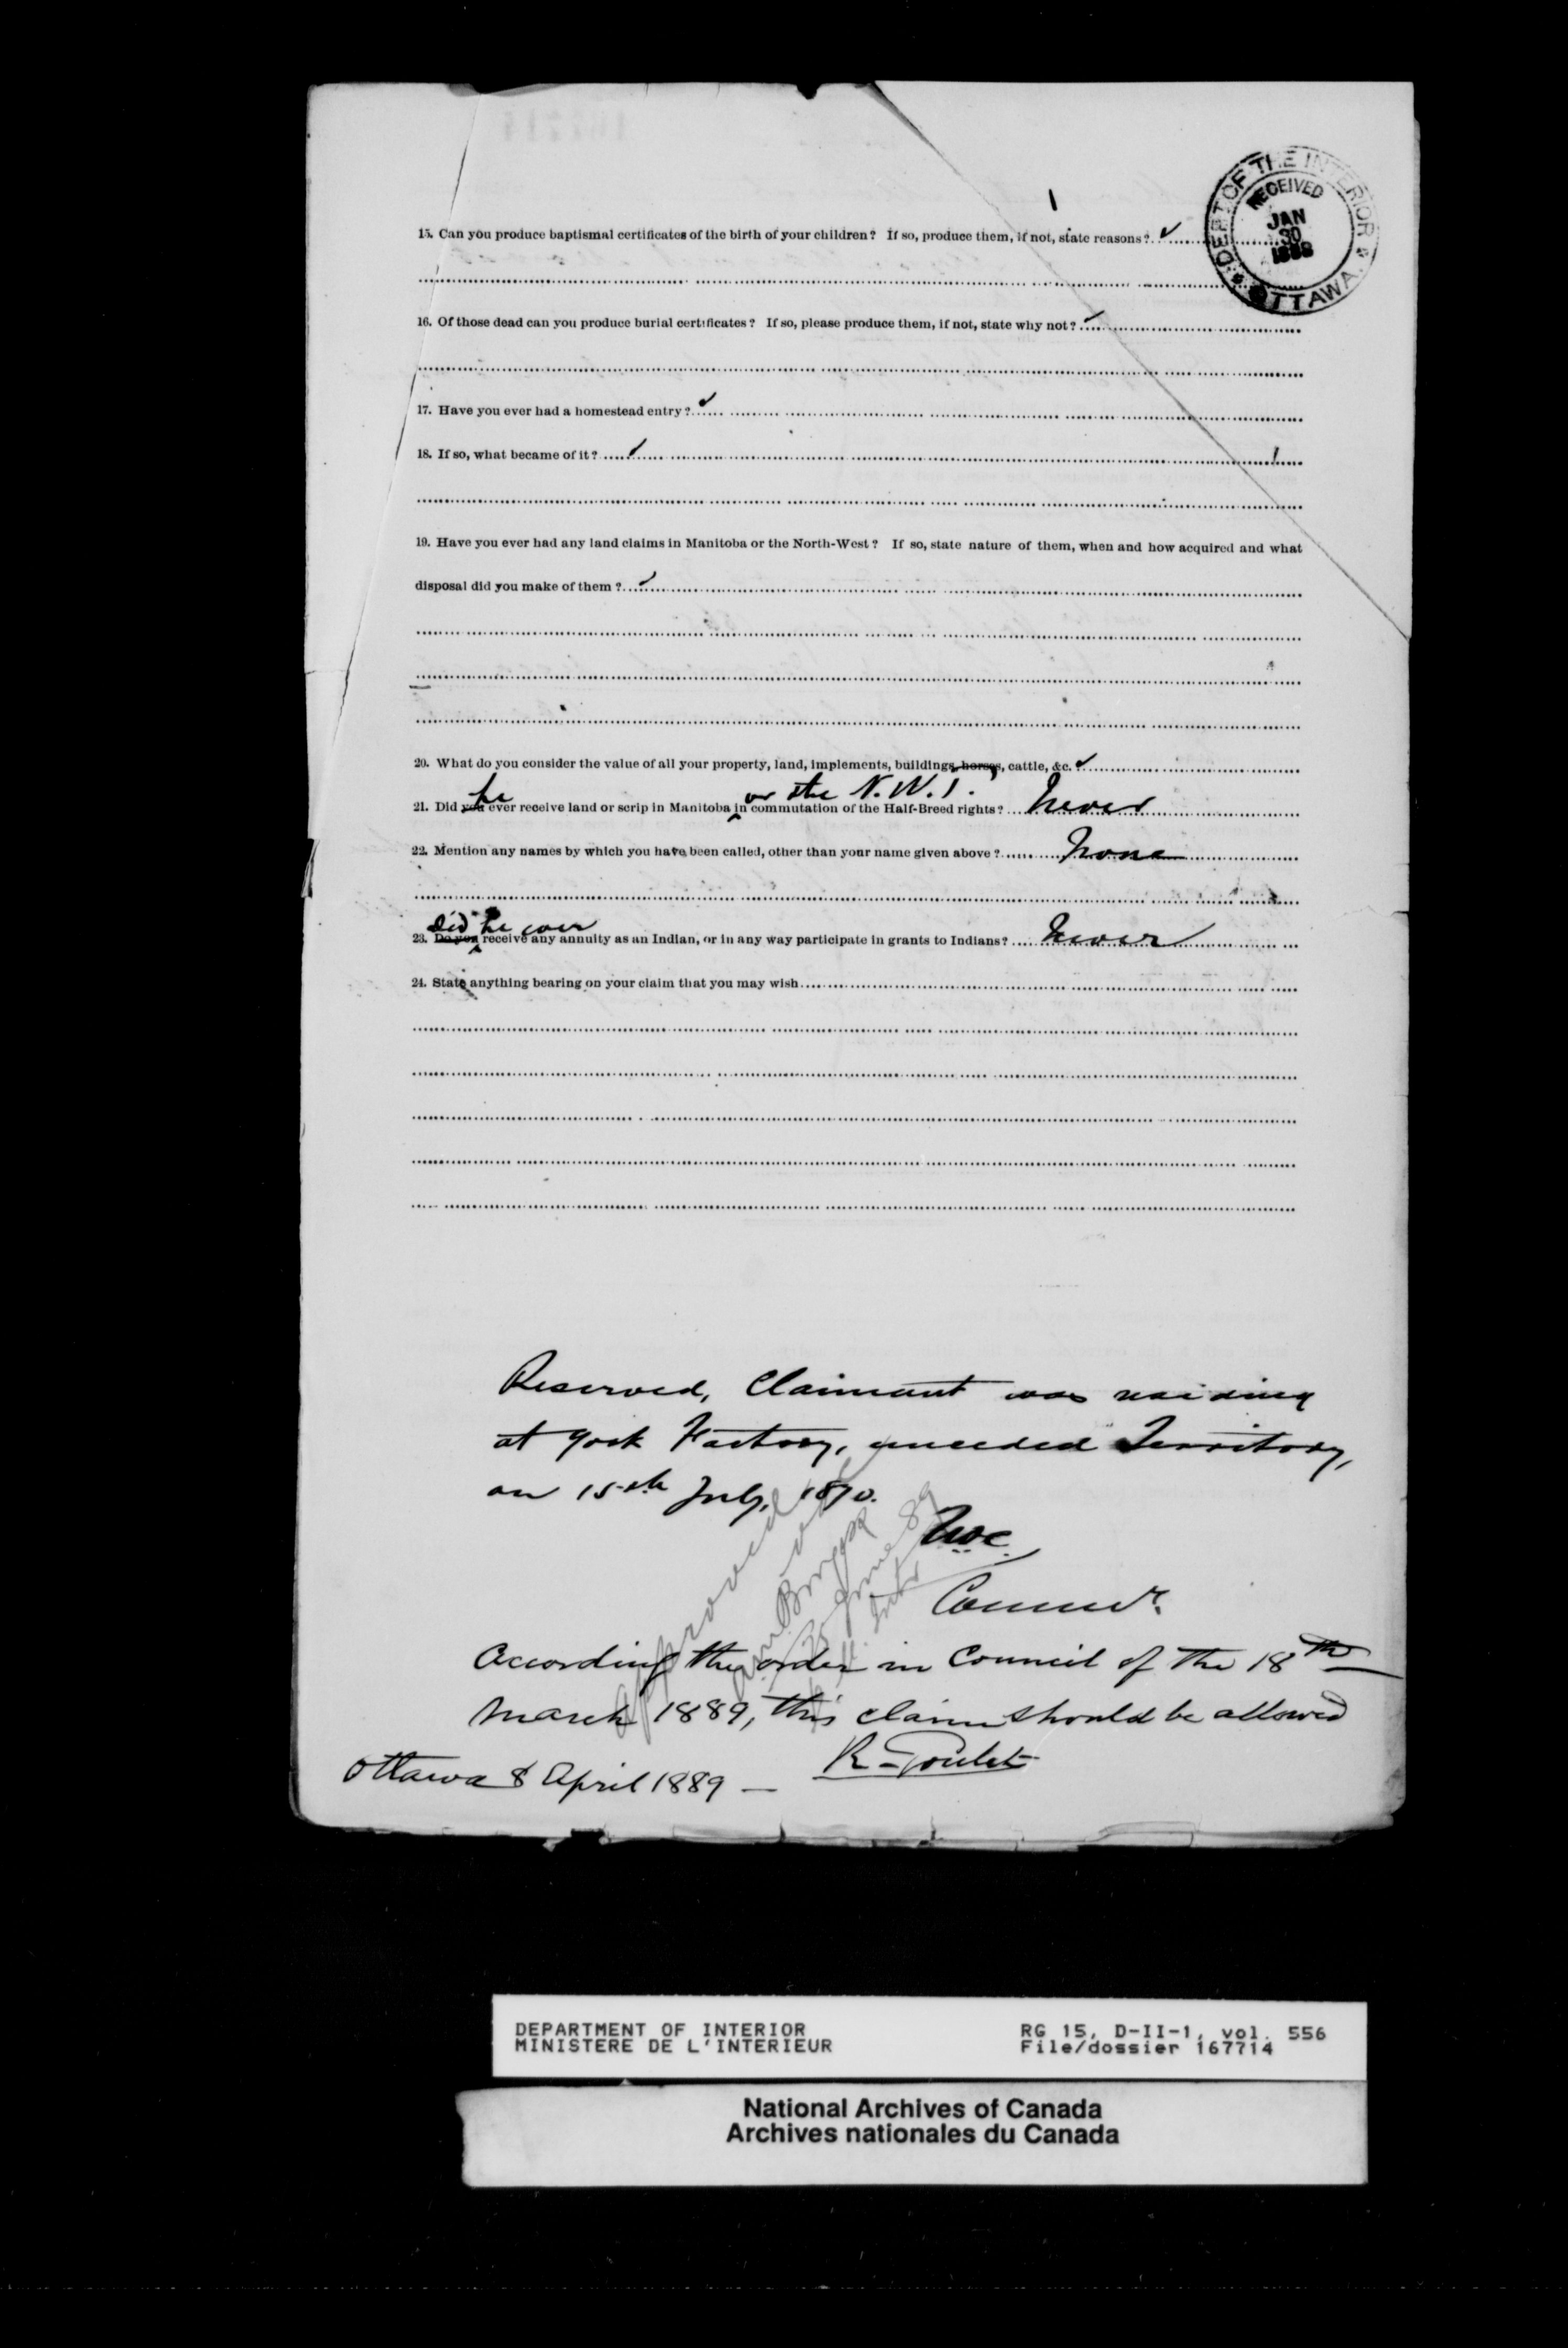 DEPT OF THE INTERIOR
RECEIVED
JAN
30
OTTAWA
15. Can you produce baptismal certificates of the birth of your children? If so, produce them, if not, state reasons?
16. Of those dead can you produce burial certificates? If so, please produce them, if not, state why not?
17. Have you ever had a homestead entry?
18. If so, what became of it?
19. Have you ever had any land claims in Manitoba or the North-West? If so, state nature of them, when and how acquired and what
disposal did you make of them?
20. What do you consider the value of all your property, land, implements, buildings, horses, cattle, &c.
he or the N.W.T.
21. Did you ever receive land or scrip in Manitoba in commutation of the Half-Breed rights? Never
22. Mention any names by which you have been called, other than your name given above? None
Did he ever
23. Do you receive any annuity as an Indian, or in any way participate in grants to Indians? Never
24. State anything bearing on your claim that you may wish
Reserved, Claimant was residing
at York Factory, unceded Territory,
on 15th July, 1870.
Commr.
approved
According the order in Council of the 18th
March 1889, this claim should be allowed
R. Goulet
Ottawa 8 April 1889 —
DEPARTMENT OF INTERIOR
MINISTERE DE L'INTERIEUR
RG 15, D-II-1, vol. 556
File/dossier 167714
National Archives of Canada
Archives nationales du Canada